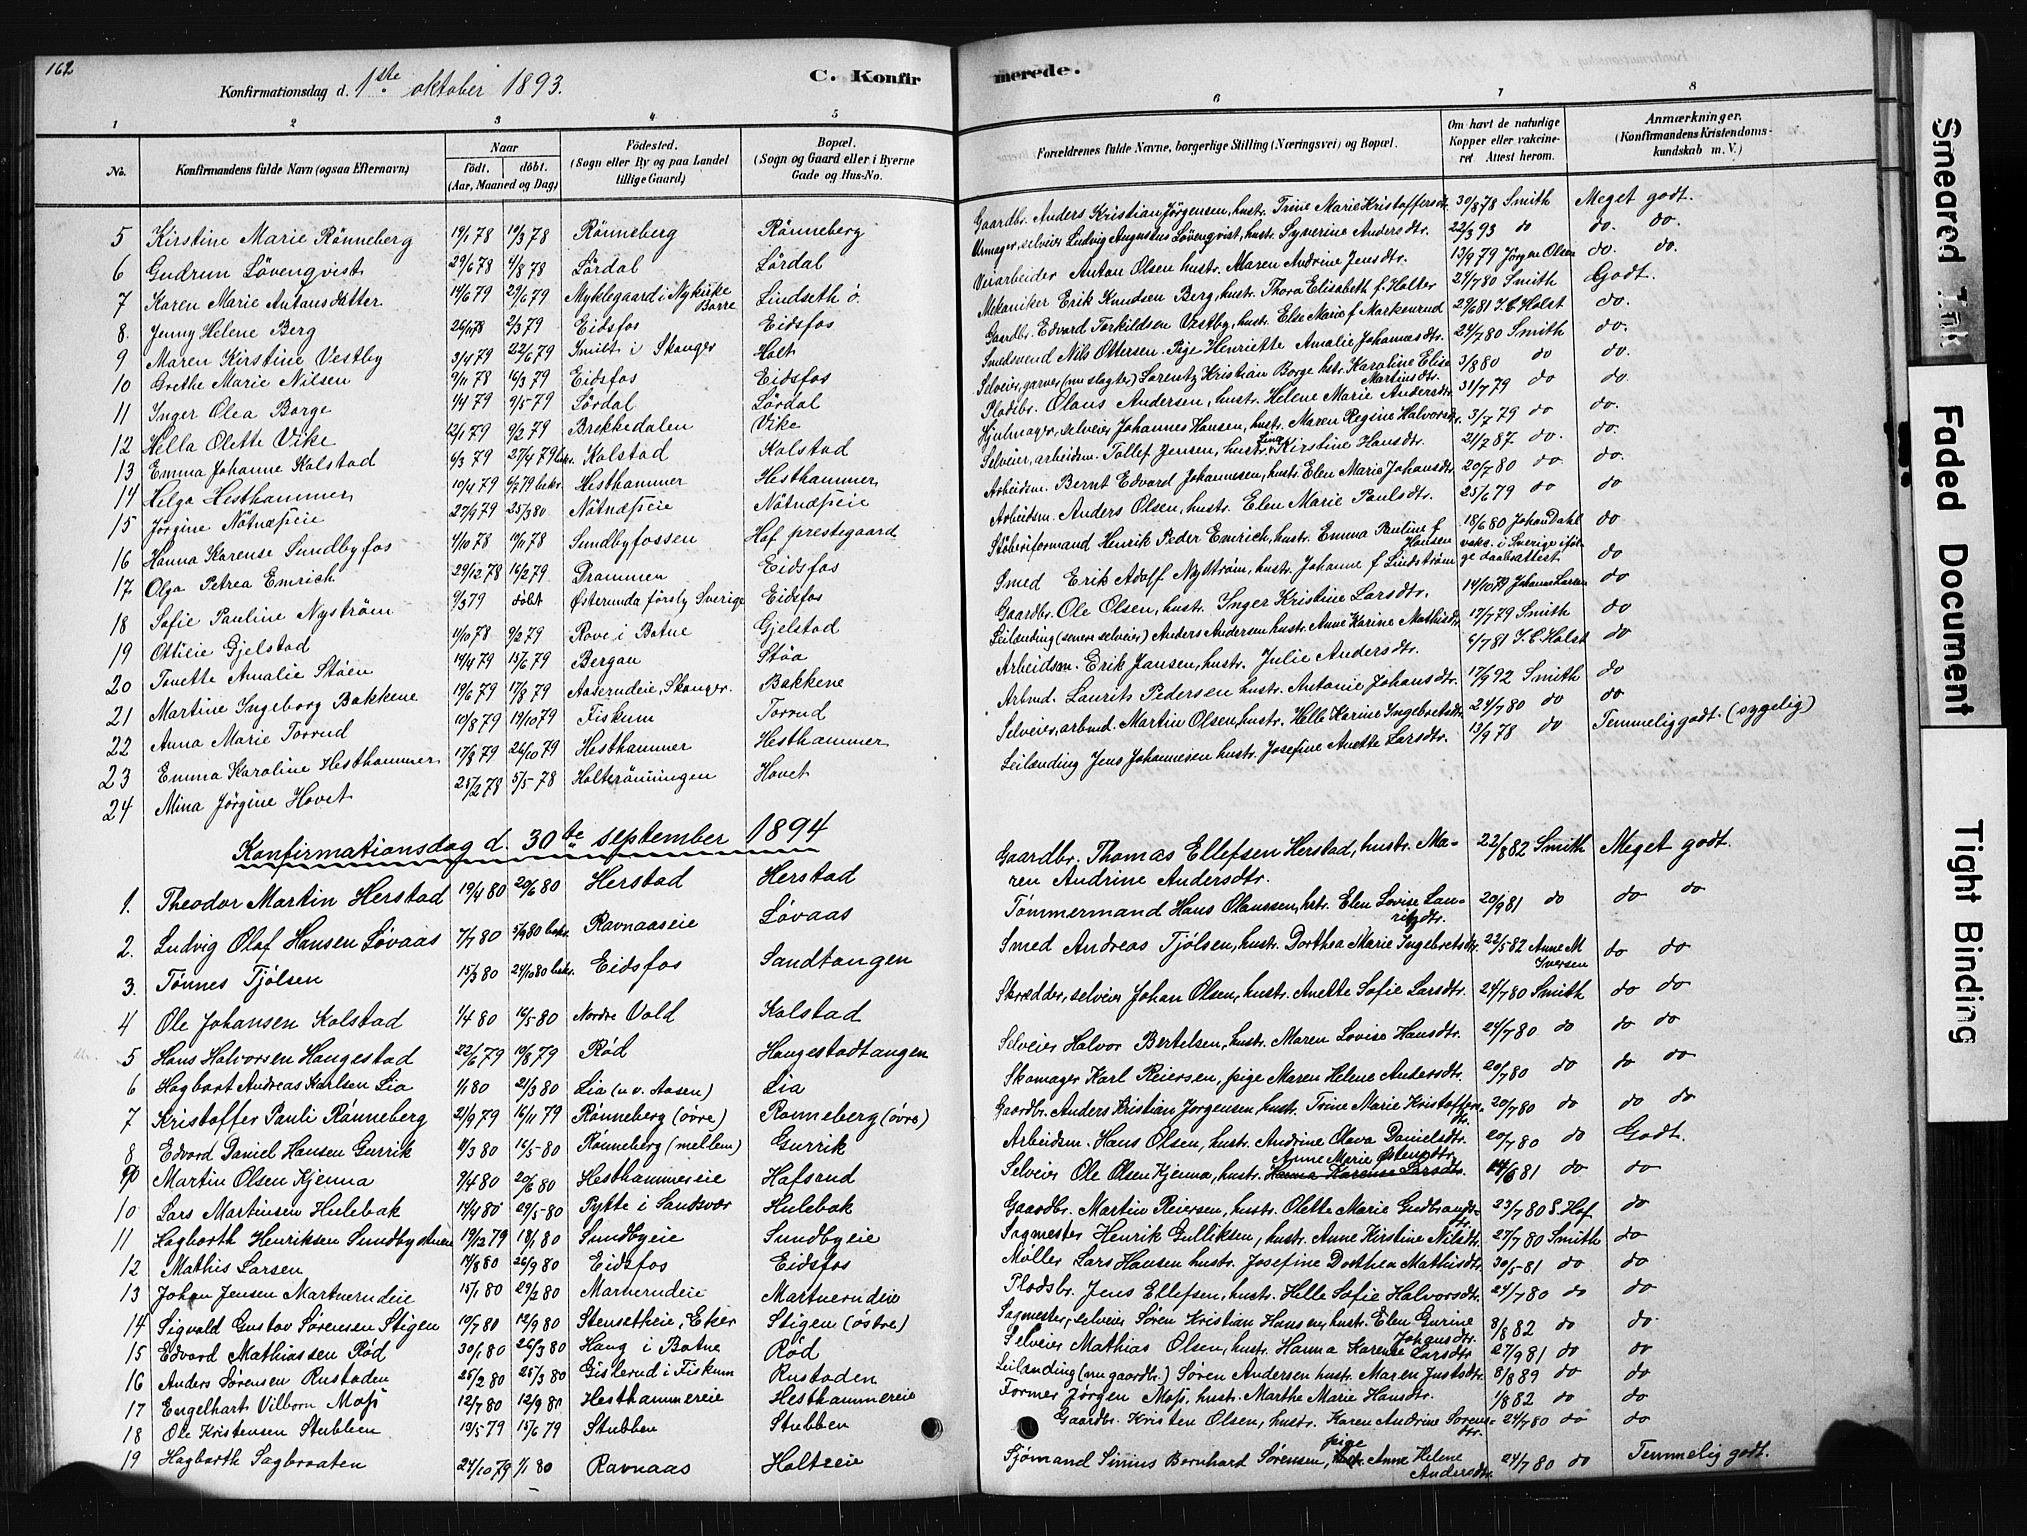 162
Konfirmationsdag d. 1ste oktober 1893.
C. Konfir
merede.
1 2 3 4 5 6 7 8
No.
Konfirmandens fulde Navn (ogsaa Efternavn)
Naar
Født. døbt.
(Aar, Maaned og Dag)
Födested.
(Sogn eller By og paa Landet
tillige Gaard)
Bopæl.
(Sogn og Gaard eller i Byerne
Gade og Hus-No.
Forældrenes fulde Navne, borgerlige Stilling (Næringsvei) og Bopæl.
Om havt de naturlige
Kopper eller vakcine-
ret Attest herom.
Anmærkninger.
(Konfirmandens Kristendoms-
kundskab m. V.)
5 Kirstine Marie Rønneberg 19/1 78 10/3 78 Rønneberg Rønneberg Gaardbr. Anders Kristian Jørgensen, hustr. Trine Marie Kristoffersdt. 30/8 78 Smith Meget godt.
6 Gudrun Løvenqvist 29/6 78 4/8 78 Lørdal Lørdal Urmager, selveier Ludvig Augustus Løvenqvist, hustr. Syverine Andersdtr. 22/3 93 do do. do.
7 Karen Marie Antonsdatter 14/6 79 29/6 79 Myklegaard i Nykirke Borre Lindseth ø. Veiarbeider Anton Olsen hustr. Maren Andrine Jensdtr. 13/9 79 Jörgen Olsen do. do.
8. Jenny Helene Berg 26/11 78 2/3 79 Eidsfos Eidsfos Mekaniker Erik Knudsen Berg, hustr. Thora Elisabeth f. Holter 24/7 80 Smith Godt.
9 Maren Kirstine Vestby 3/4 79 22/6 79 Smilt i Skauger Holt Gaardbr. Edvard Torkildsen Vestby, hustr. Else Marie f Markenrud 29/6 81 J. C. Holst do.
10 Grethe Marie Nilsen 9/11 78 16/3 79 Eidsfos Eidsfos Smedsvend Nils Ottersen. Pige Henriette Amalie Johannesdtr. 24/7 80 Smith do.
11 Inger Olea Borge 1/4 79 9/5 79 Lørdal Lørdal Selveier, garver (nu slagter) Lorentz Kristian Borge hstr. Karoline Elise Martinsdtr. 3/8 80 do do.
12 Hilla Olette Vike 12/1 79 9/2 79 Brekkedalen Vike Pladsbr. Olaus Andersen, hustr. Helene Marie Andersdtr. 31/7 79 do do.
13 Emma Johanne Kolstad 6/3 79 27/4 79 bekr. Kolstad Kolstad Hjulmager, selveier Johannes Hansen, hustr. Maren Regine Halvorsdtr. 3/7 79 do do.
14 Helga Hesthammer 10/4 79 6/7 79 bekr. Hesthammer Hesthammer Selveier, arbeidsm. Tollef Jensen, hustr. Lina Kirstine Hansdtr. 21/7 87 do. do.
15 Jörgine Nötnæseie 27/9 79 25/3 80 Nötnæseie Nötnæseie Arbeidsm. Bernt Edvard Johannessen, hustr. Elen Marie Johansdtr. 20/7 80 do do.
16 Hanna Karense Sundbyfos 4/10 78 10/11 78 Sundbyfossen Hof prestegaard Arbeidsm. Anders Olsen, hustr. Elen Marie Paulsdtr. 25/6 79 do do
17 Olga Petrea Emrich 29/12 78 16/2 79 Drammen Eidsfos Støberiformand Henrik Peder Emrich, hustr. Emma Pauline f Hansen 18/6 80 Johan Dahl do
18 Sofie Pauline Nyström 9/3 79 döbt Østerunda försly Sverige Eidsfos Smed Erik Adolf Nyström, hustr. Johanne f Lindström vakc. i Sverige iføl- ge daabsattest do
19 Ottilie Gjelstad 11/10 78 9/2 79 Rove i Botne Gjelstad Gaardbr. Ole Olsen, hustr. Inger Kristine Larsdtr. 14/10 79 Johan Larsen do
20 Tonette Amalie Støen 14/4 79 15/6 79 Bergan Støa Leilænding (senere selveier) Anders Andersen hustr. Anne Karine Mathisdtr. 17/7 79 Smith do
21 Martine Ingeborg Bakkene 19/6 79 17/8 79 Aaserudeie, Skauger. Bakkene Arbeidsm. Erik Jansen, hustr. Julie Andersdtr. 6/7 81 J. C. Holst do
22 Anna Marie Torrud 10/8 79 19/10 79 Fiskum Torrud Arbmd. Laurits Pedersen hustr. Antonie Johansdtr. 17/9 92 Smith do
23 Emma Karoline Hesthammer 17/8 79 26/10 79 Hesthammer Hesthammer Selveier, arbmd. Martin Olsen, hustr. Helle Karine Ingebretsdtr. 24/7 80 do do
24 Mina Jörgine Hovet 25/2 78 5/5-78 Holterönningen Hovet Leilænding Jens Johannesen hustr. Josefine Anette Larsdtr. 13/9 78 do Temmelig godt. (sygelig)
Konfirmationsdag d. 30te september 1894
1. Theodor Martin Herstad 19/4 80 20/6 80 Herstad Herstad Gaardbr. Thomas Ellefsen Herstad, hustr. Ma-
ren Andrine Andersdtr. 22/8 82 Smith Meget godt.
2. Ludvig Olaf Hansen Løvaas 7/7 80 5/9 80 bekr. Ravnaaseie Løvaas Tømmermand Hans Olaussen, hstr. Elen Lovise Lau-
ritzdtr. 20/9 81 do do do
3. Tønnes Tjølsen 15/3 80 24/10 80 bekr. Eidsfos Sandtangen Smed Andreas Tjølsen, hustr. Dorthea Marie Ingebretsdtr. 22/5-82 Anne M Iversen do do
4 Ole Johansen Kolstad 1/4 80 16/5-80 Nordre Vold Kolstad Skrædder, selveier Johan Olsen, hustr. Anette Sofie Larsdtr. 24/7 80 Smith do do
5 Hans Halvorsen Haugestad 22/6 79 10/8 79 Rød Haugestadtangen Selveier Halvor Bertelsen, hustr. Maren Lovise Hansdtr. 24/7 80 do do do
6 Hagbart Andreas Karlsen Lia 1/1 80 21/3 80 Lia (u. v. Aasen) Lia Skomager Karl Reiersen, pige Maren Helene Andersdtr. 20/7 80 do do do
7 Kristoffer Pauli Rønneberg 21/9 79 16/11 79 Rønneberg (øvre) Rønneberg (øvre) Gaardbr. Anders Kristian Jørgensen, hustr. Trine Marie Kristoffers- dtr. 20/7 80 do do do
8 Edvard Daniel Hansen Gurrik 11/3 80 16/5-80 Rønneberg (mellem) Gurrik Arbeidsm. Hans Olsen, hustr. Andrine Olava Danielsdtr. 20/7 80 do Godt.
9 Martin Olsen Kjenna 7/4 80 20/6 80 Hesthammereie Hafsrud Selveier Ole Olsen Kjenna, hustr. Anne Marie Østensdtr. Hanna Karense Larsdtr. 14/6 81 do do
10 Lars Martinsen Hulebak 14/4 80 29/5-80 Pytte i Sandsvær Hulebak Gaardbr. Martin Reiersen, hustr. Olette Marie Gudbrands- dtr. 23/7 80 S. Hof do
11 Hagbarth Henriksen Sundbyeie 19/12 79 18/1 80 Sundbyeie Sundbyeie Sagmester Henrik Gulliksen, hustr. Anne Kirstine Nilsdtr. 27/7 80 Smith do
12 Mathis Larsen 14/8 80 26/9 80 Eidsfos Eidsfos Møller Lars Hansen hustr. Josefine Dorthea Mathisdtr. 30/5-81 do do
13 Johan Jensen Martnerudeie 15/1 80 29/2 80 Marnerudeie Martnerudeie Pladsbr. Jens Ellefsen, hustr. Helle Sofie Halvorsdtr. 24/7 80 do do
14 Sigvald Gustav Sørensen Stigen 10/7 80 12/9 80 Stensetheie, Eker Stigen (østre) Sagmester, selveier Søren Kristian Hansen, hustr. Elen Gurine Johansdtr. 8/8 82 do do.
15 Edvard Mathiassen Rød 30/1 80 26/3 80 Haug i Botne Rød Selveier Mathias Olsen, hustr. Hanna Karense Larsdtr 27/9 81 do do
16 Anders Sørensen Rustaden 25/2 80 25/3 80 Gislerud i Fiskum Rustaden Leilænding (nu gaardbr.) Søren Andersen hustr. Maren Justsdtr. 8/8 89 do do
17 Engelhart Vilborn Moss 12/7 80 12/9 80 Hesthammereie Hesthammereie Former Jørgen Moss, hustr. Marthe Marie Hansdtr. 1/8 82 do do
18 Ole Kristensen Stubben 10/5-79 15/6 79 Stubben Stubben Gaardbr. Kristen Olsen, hustr. Karen Andrine Sørens- dtr. 24/7 80 do do
19 Hagbarth Sagbraaten 24/10 79 1/1 80 Ravnaas Holtseie Sjømand Sinius Bernhard Sørensen, pige Anne Helene Andersdtr. 24/7 80 do Temmelig godt.
Smeared Ink
Faded Document
Tight Binding